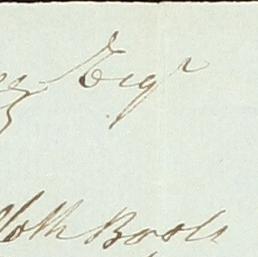 Esqr
Cloth Boots